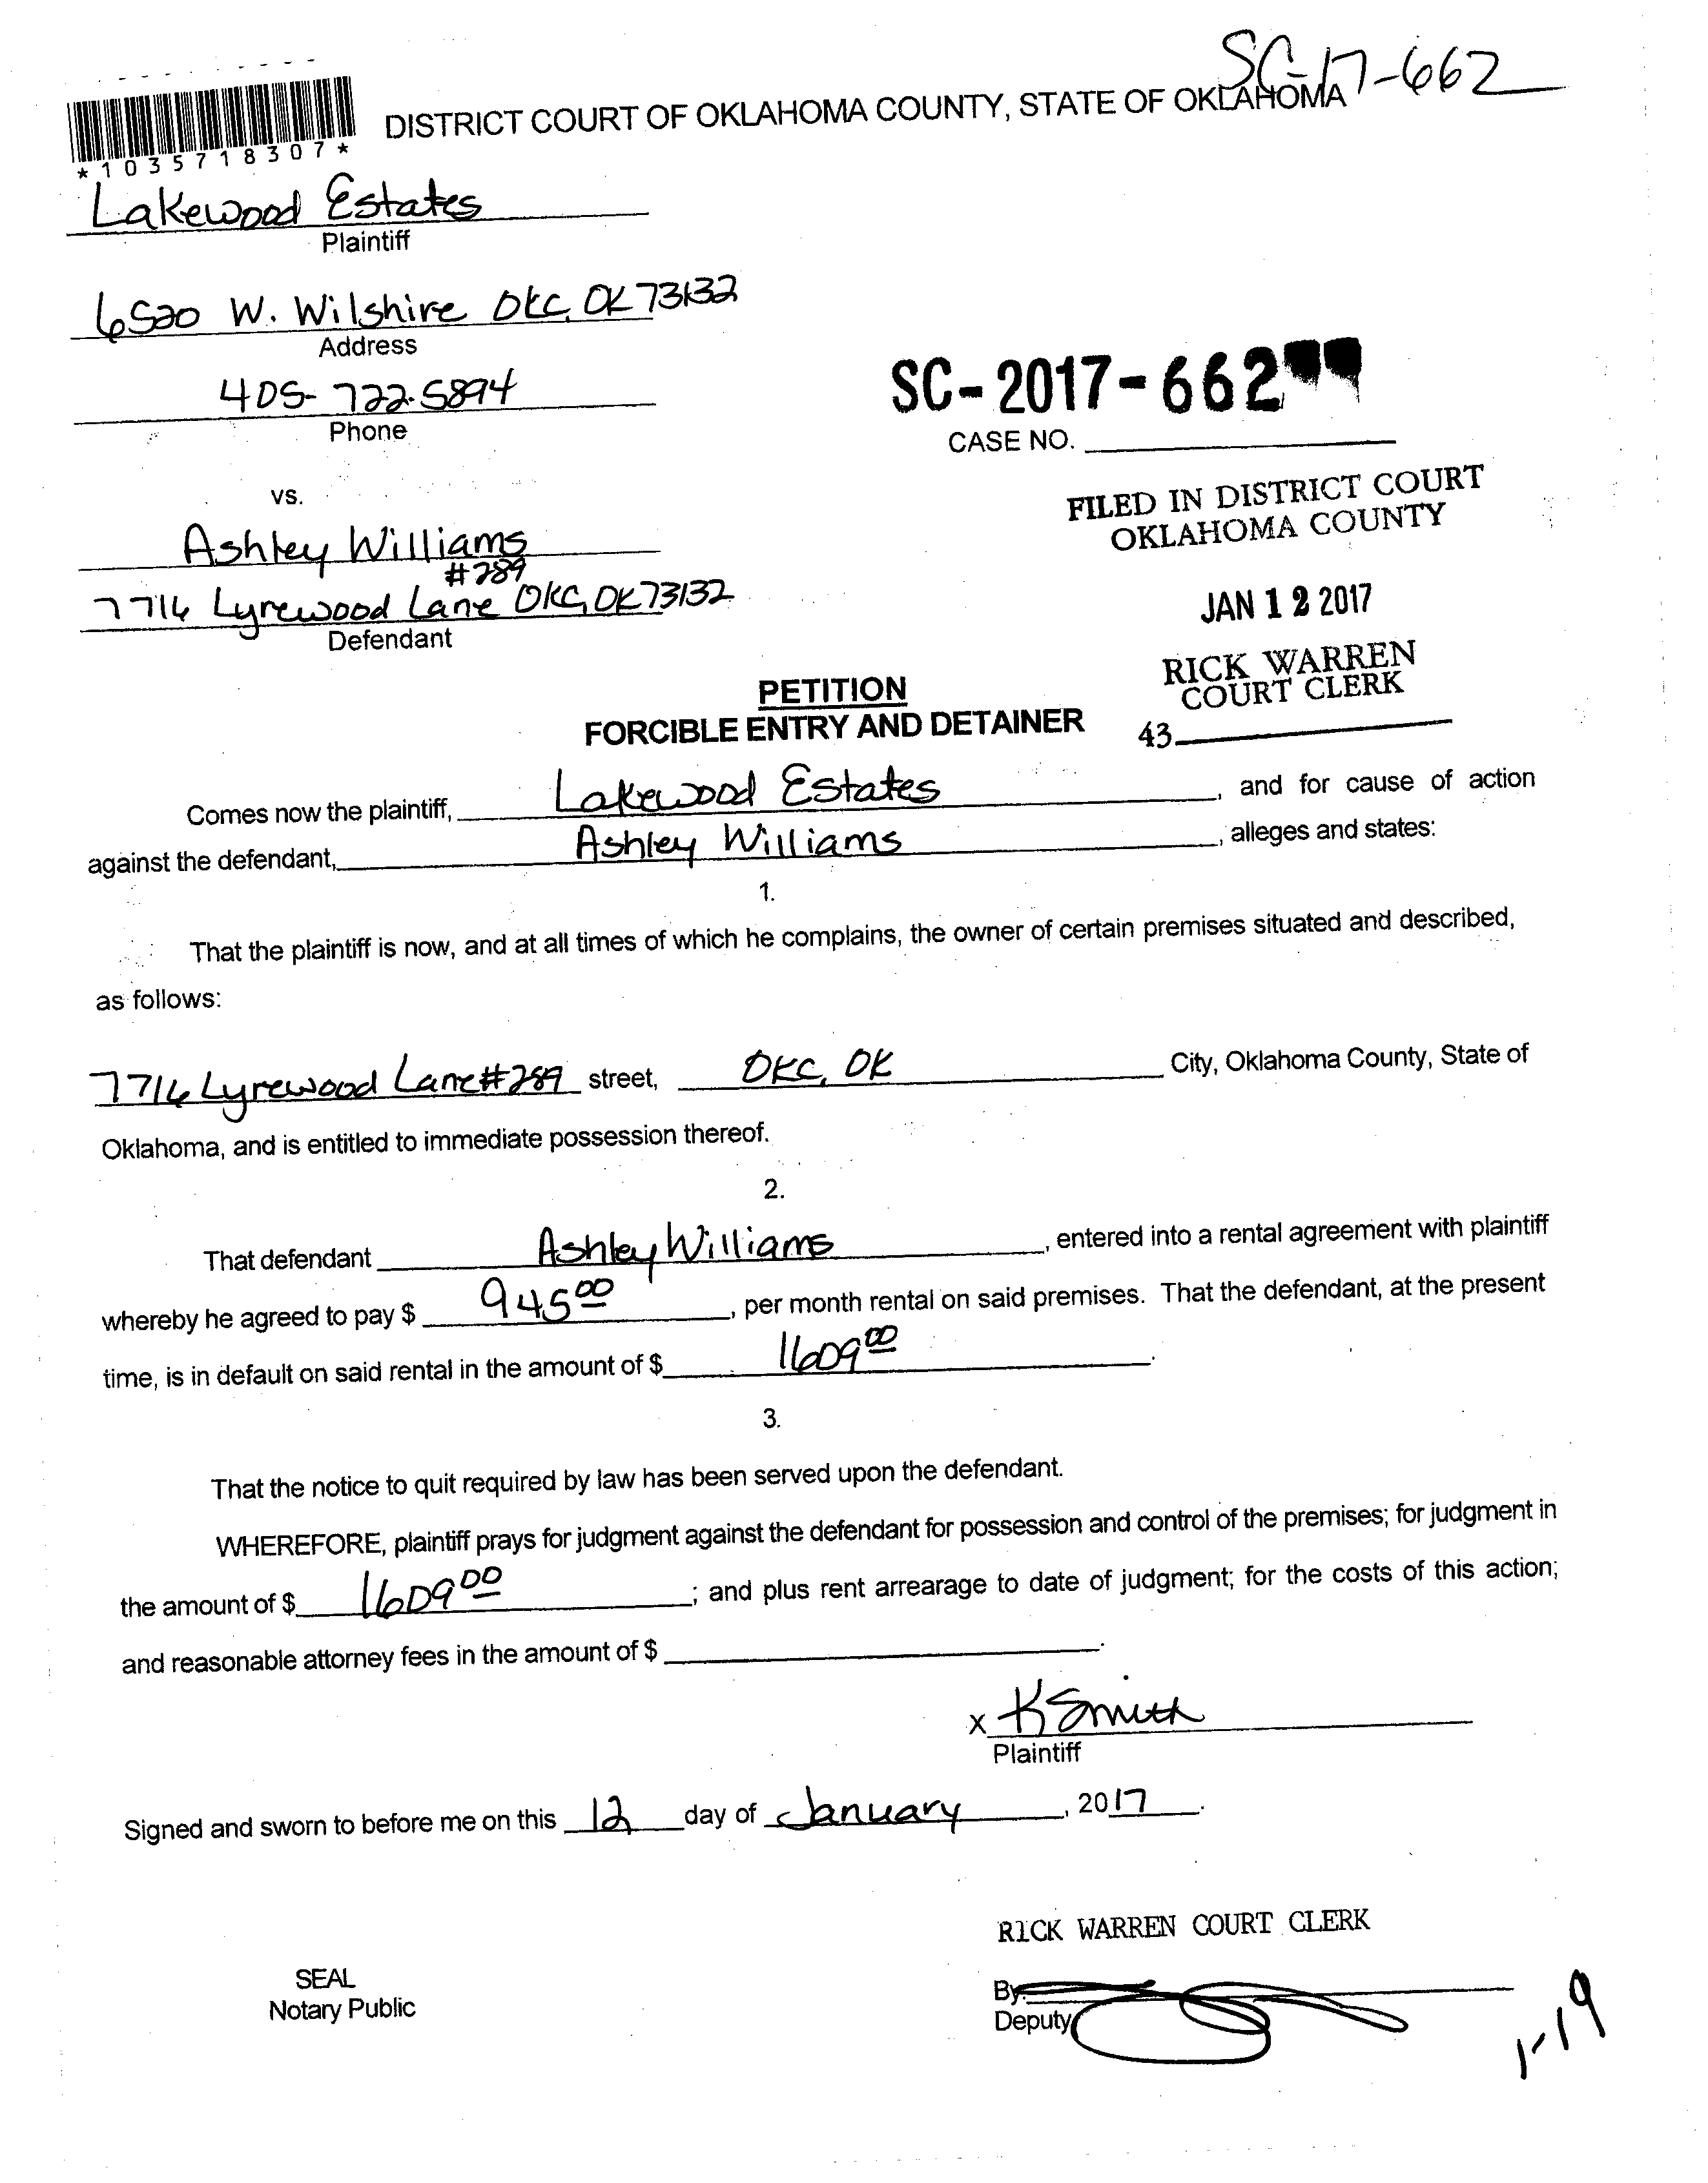 SC-17-662
DISTRICT COURT OF OKLAHOMA COUNTY, STATE OF OKLAHOMA
*1035718307*
Lakewood Estates
Plaintiff
6520 W. Wilshire OKC, OK 73132
Address
405-722-5894
Phone
SC-2017-662
CASE NO.
vs.
FILED IN DISTRICT COURT
OKLAHOMA COUNTY
Ashley Williams
#289
7716 Lyrewood Lane OKC, OK 73132
Defendant
JAN 12 2017
RICK WARREN
COURT CLERK
43
PETITION
FORCIBLE ENTRY AND DETAINER
Comes now the plaintiff, Lakewood Estates, and for cause of action
against the defendant, Ashley Williams, alleges and states:
1.
That the plaintiff is now, and at all times of which he complains, the owner of certain premises situated and described,
as follows:
7716 Lyrewood Lane #289 street, OKC, OK City, Oklahoma County, State of
Oklahoma, and is entitled to immediate possession thereof.
2.
That defendant Ashley Williams, entered into a rental agreement with plaintiff
whereby he agreed to pay $ 945.00, per month rental on said premises. That the defendant, at the present
time, is in default on said rental in the amount of $ 1609.00.
3.
That the notice to quit required by law has been served upon the defendant.
WHEREFORE, plaintiff prays for judgment against the defendant for possession and control of the premises; for judgment in
the amount of $ 1609.00; and plus rent arrearage to date of judgment; for the costs of this action;
and reasonable attorney fees in the amount of $ .
x K Smith
Plaintiff
Signed and sworn to before me on this 12 day of January, 2017.
RICK WARREN COURT CLERK
SEAL
Notary Public
By:
Deputy
1-19